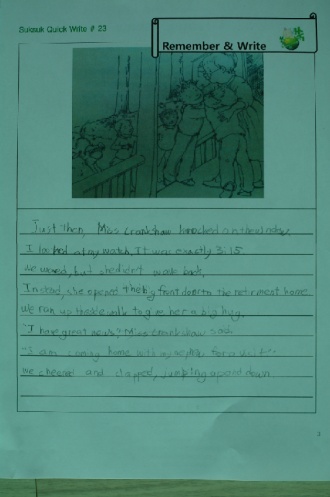 Suksuk Quick Write # 23
Remember & Write
Just then, Miss Crankshaw knocked on the window.
I looked at my watch. It was exactly 3:15.
We waved, but she didn't wave back.
Instead, she opened the big front door to the retirement home.
We ran up the to give her a big hug.
"I have great news" Miss Crankshaw said.
"I am coming home with my for a visit."
We cheered and clapped, jumping up and down.